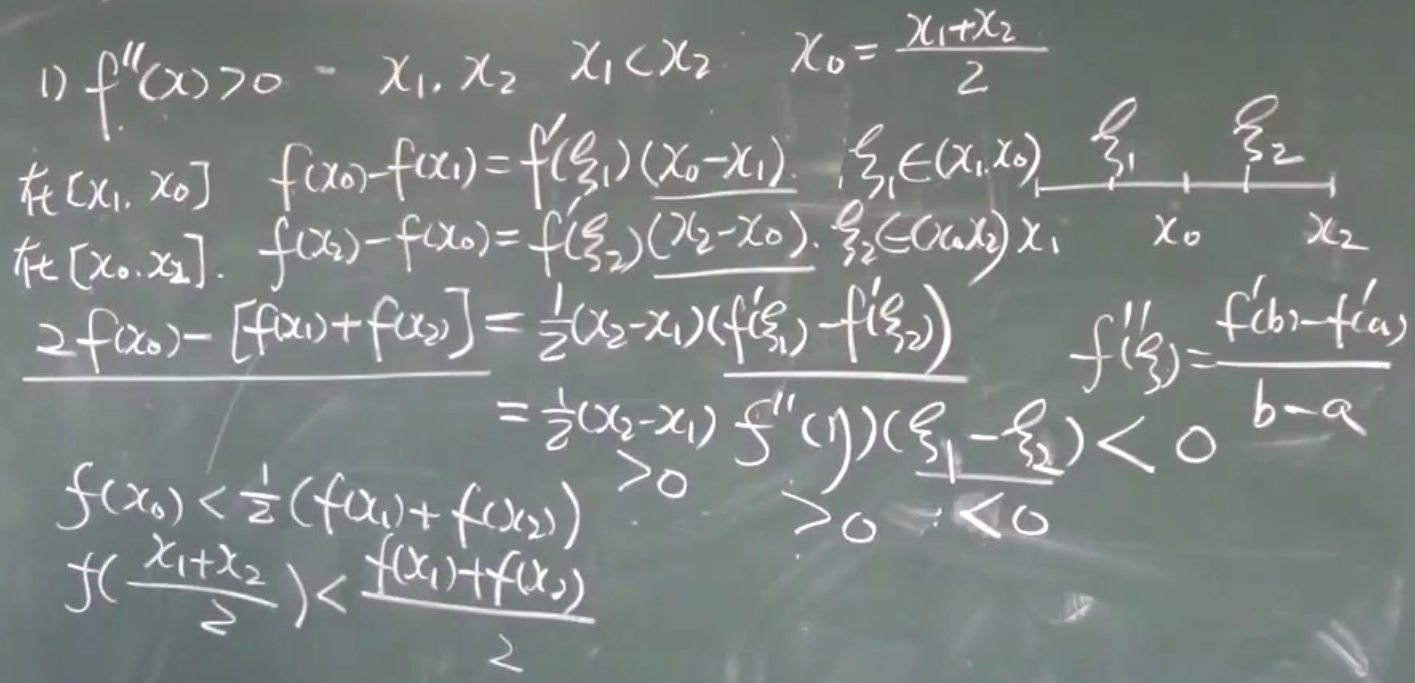 1) f''(x)>0 - x₁, x₂ x₁<x₂ x₀=(x₁+x₂)/2
在[x₁, x₀] f(x₀)-f(x₁)=f'(ξ₁)(x₀-x₁). ξ₁∈(x₁,x₀) ξ₁ ξ₂
在[x₀,x₂]. f(x₂)-f(x₀)=f'(ξ₂)(x₂-x₀). ξ₂∈(x₀,x₂) x₁ x₀ x₂
2f(x₀)-[f(x₁)+f(x₂)]=½(x₂-x₁)(f'(ξ₁)-f'(ξ₂)) f''(ξ)=(f'(b)-f'(a))/(b-a)
=½(x₂-x₁) f''(η)(ξ₁-ξ₂)<0
>0 >0 <0
f(x₀)<½(f(x₁)+f(x₂))
f((x₁+x₂)/2)<(f(x₁)+f(x₂))/2